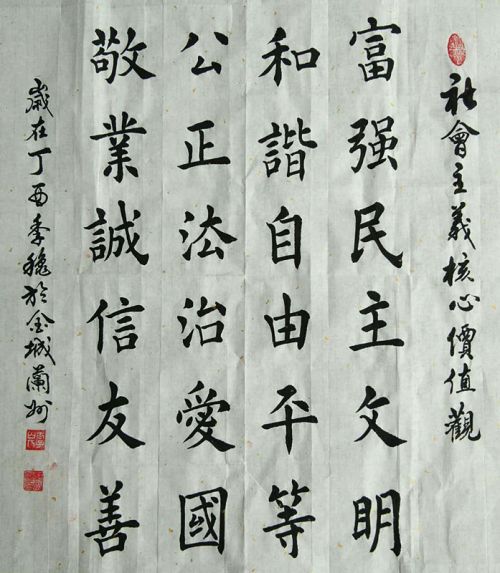 社會主義核心價值觀
富强民主文明
和諧自由平等
公正法治愛國
敬業誠信友善
歲在丁酉季穐於金城蘭州